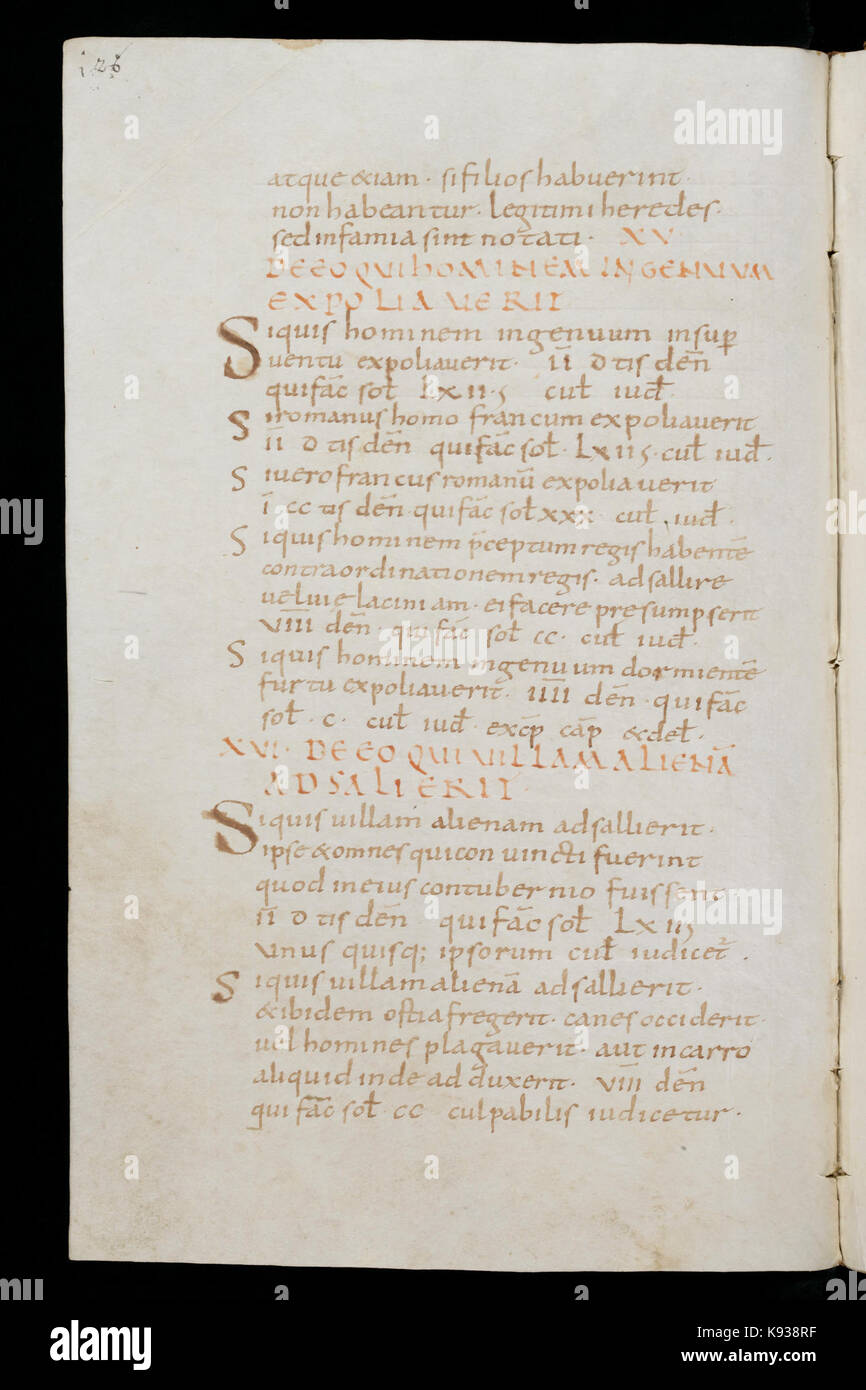 126
atque &iam · si filios habuerint
non habeantur · legitimi heredes ·
sed infamia sint notati · XV
DE EO QUI hOMINEM INGENUUM
EXPOLIAVERIT
Siquis hominem ingenuum insup̄
ventu expoliaverit · īī d tis deñ
qui fac̄ sol̄ Lxii s cul̄ iud̄ ·
Si romanus homo francum expoliaverit
īī d tis den̄ qui fac̄ sol̄ · Lxii s · cul̄ iud̄ ·
Si vero francus romanū expoliaverit
ī cc tis den̄ · qui fac̄ sol̄ xxx cul̄ iud̄ ·
Siquis hominem p̄ceptum regis habentē
contra ordinationem regis · adsallire
vel viae laciniam · ei facere presumpserit
VIII den̄ · qui fac̄ sol̄ cc · cul̄ iud̄ ·
Siquis hominem ingenuum dormientē
furtu expoliaverit · IIII den̄ · qui fac̄
sol̄ · c · cul̄ iud̄ exc̄p cap̄ & del̄ ·
XVI · DE EO QUI VILLAM ALIENĀ
ADSALIERIT
Siquis villam alienam adsallierit ·
ipse & omnes qui convincti fuerint
quod in eius contubernio fuissent
īī d tis den̄ qui fac̄ sol̄ Lxii s
unus quisq; ipsorum cul̄ iudicet̄ ·
Siquis villam alienā adsallierit ·
& ibidem ostia fregerit · canes occiderit ·
vel homines plagaverit · aut in carro
aliquid inde adduxerit · VIII den̄
qui fac̄ sol̄ · cc culpabilis iudicetur ·
alamy
alamy stock photo
K938RF
www.alamy.com